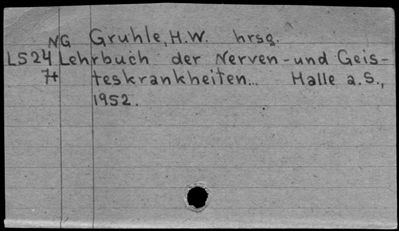 NG Gruhle, H.W. hrsg.
LS24 Lehrbuch der Nerven-und Geis-
7+ teskrankheiten... Halle a.S.,
1952.